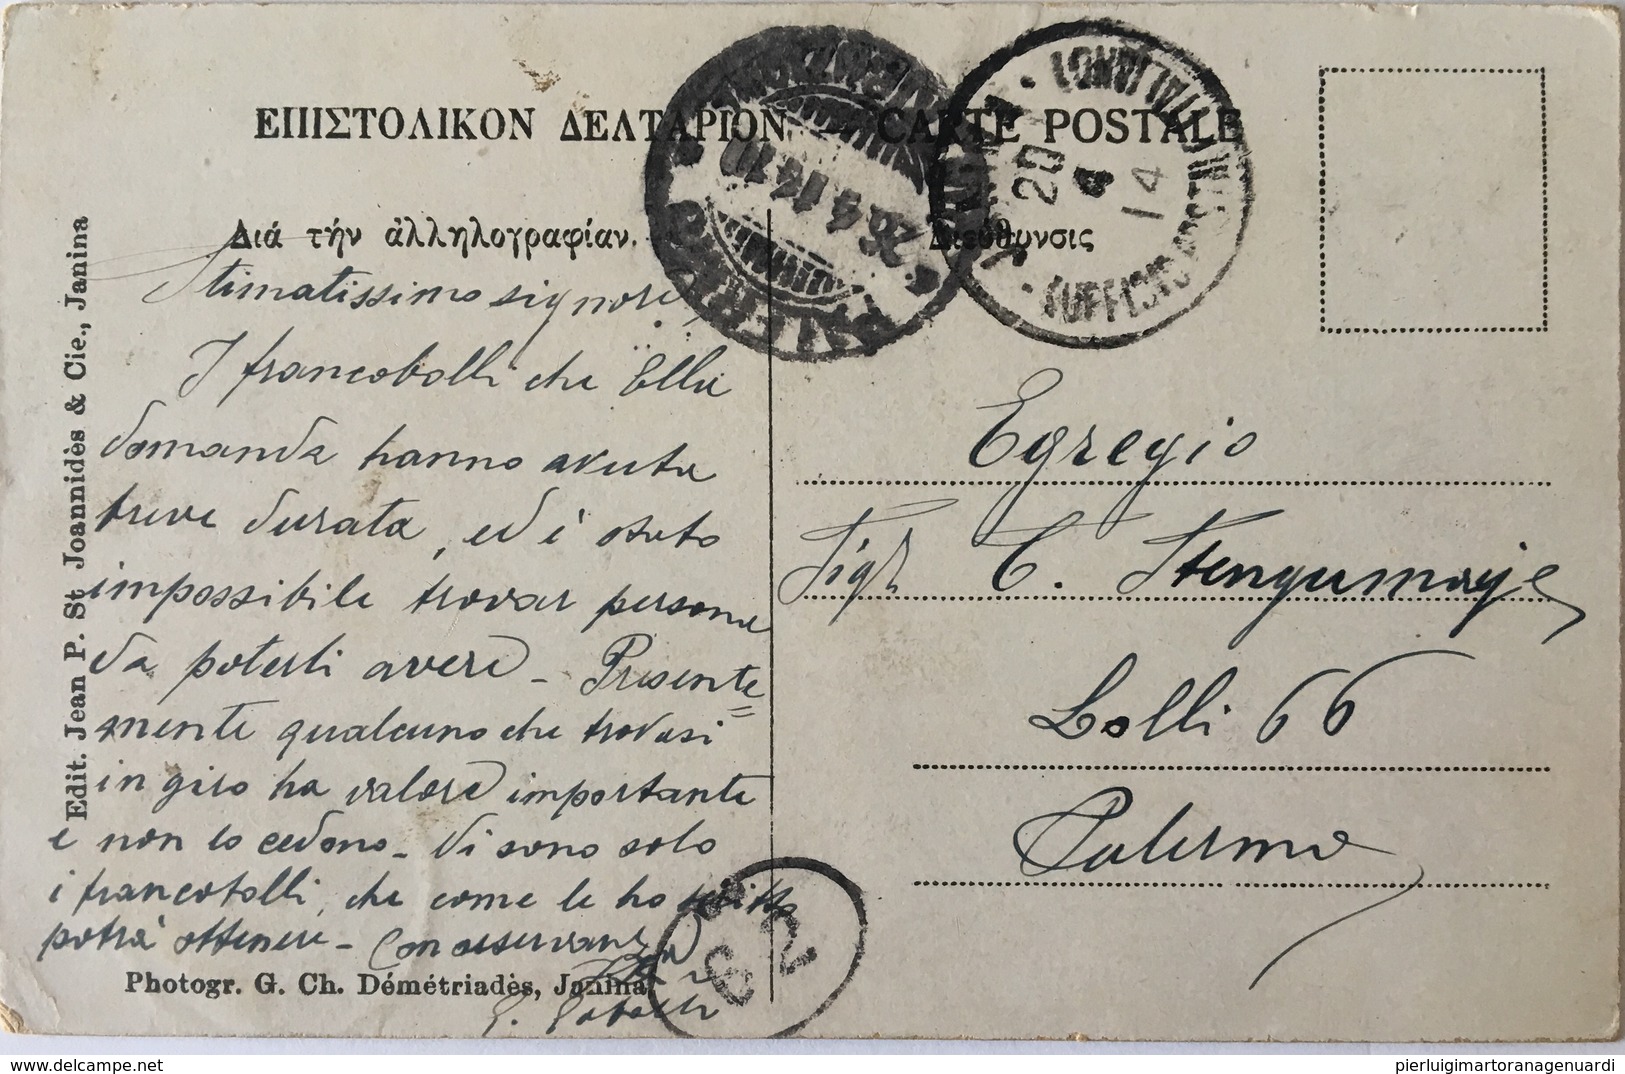 ΕΠΙΣΤΟΛΙΚΟΝ ΔΕΛΤΑΡΙΟΝ. — CARTE POSTALE
Διά τήν ἀλληλογραφίαν.
Διεύθυνσις
Edit. Jean P. St Joannidès & Cie., Janina
Stimatissimo signore,
I francobolli che Ella
domanda hanno avuta
breve durata, ed è stato
impossibile trovar persona
da poterli avere – Presente=
mente qualcuno che trovasi
in giro ha valore importante
e non lo cedono – Vi sono solo
i francobolli, che come le ho scritto
potrà ottenere – Con osservanza
Photogr. G. Ch. Démétriadès, Janina.
Egregio
Sigr C. Stengumaje
Lolli 66
Palermo
PALERMO
26.4.14.10
UFFICIO POSTALE ITALIANO
20
4
14